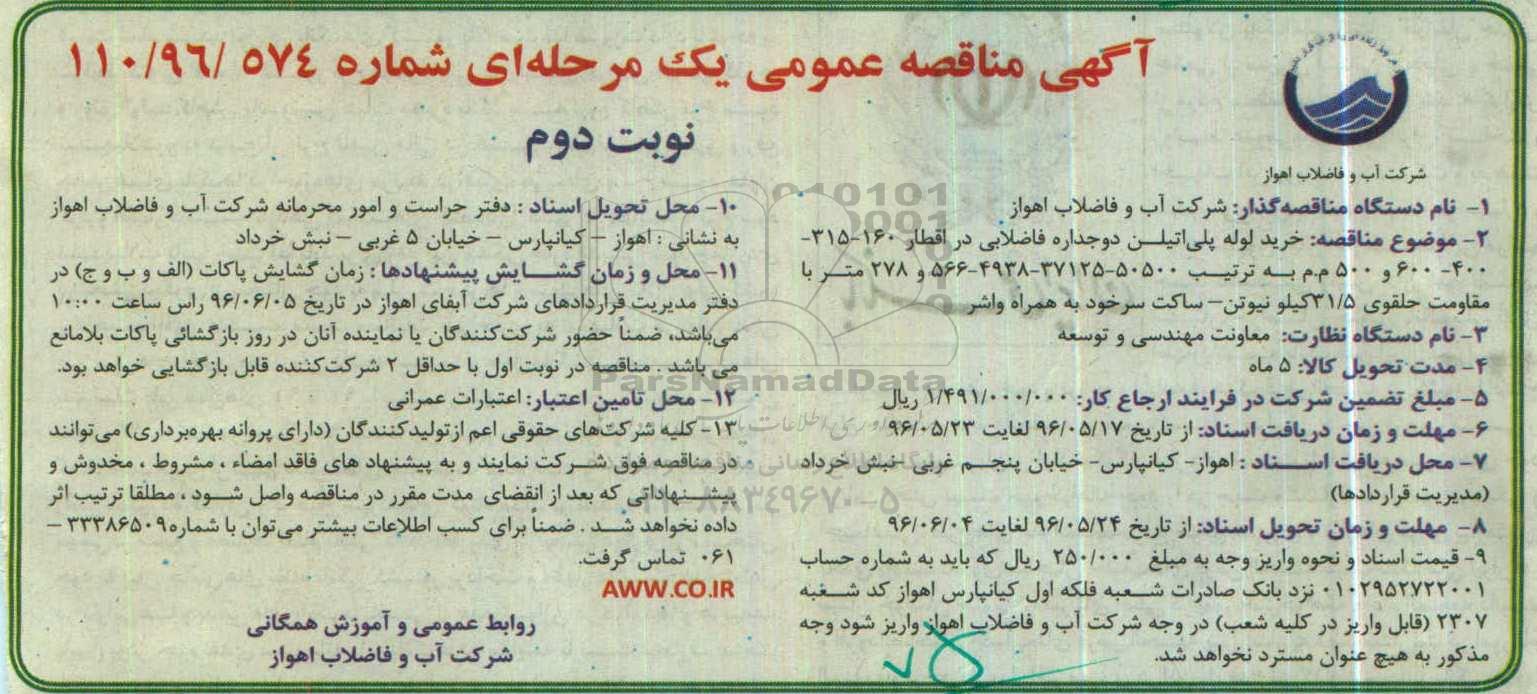 آگهی مناقصه عمومی یک مرحله‌ای شماره ۵۷٤ /۱۱۰/۹٦
نوبت دوم
شرکت آب و فاضلاب اهواز
۱- نام دستگاه مناقصه‌گذار: شرکت آب و فاضلاب اهواز
۲- موضوع مناقصه: خرید لوله پلی‌اتیلن دوجداره فاضلابی در اقطار ۱۶۰-۳۱۵-
۴۰۰- ۶۰۰ و ۵۰۰ م.م به ترتیب ۵۰۵۰۰-۳۷۱۲۵-۴۹۳۸-۵۶۶ و ۲۷۸ متر با
مقاومت حلقوی ۳۱/۵کیلو نیوتن- ساکت سرخود به همراه واشر
۳- نام دستگاه نظارت: معاونت مهندسی و توسعه
۴- مدت تحویل کالا: ۵ ماه
۵- مبلغ تضمین شرکت در فرایند ارجاع کار: ۱/۴۹۱/۰۰۰/۰۰۰ ریال
۶- مهلت و زمان دریافت اسناد: از تاریخ ۹۶/۰۵/۱۷ لغایت ۹۶/۰۵/۲۳
۷- محل دریافت اسناد : اهواز- کیانپارس- خیابان پنجم غربی -نبش خرداد
(مدیریت قراردادها)
۸- مهلت و زمان تحویل اسناد: از تاریخ ۹۶/۰۵/۲۴ لغایت ۹۶/۰۶/۰۴
۹- قیمت اسناد و نحوه واریز وجه به مبلغ ۲۵۰/۰۰۰ ریال که باید به شماره حساب
۰۱۰۲۹۵۲۷۲۲۰۰۱ نزد بانک صادرات شعبه فلکه اول کیانپارس اهواز کد شعبه
۲۳۰۷ (قابل واریز در کلیه شعب) در وجه شرکت آب و فاضلاب اهواز واریز شود وجه
مذکور به هیچ عنوان مسترد نخواهد شد.
۱۰- محل تحویل اسناد : دفتر حراست و امور محرمانه شرکت آب و فاضلاب اهواز
به نشانی : اهواز – کیانپارس – خیابان ۵ غربی – نبش خرداد
۱۱- محل و زمان گشایش پیشنهادها : زمان گشایش پاکات (الف و ب و ج) در
دفتر مدیریت قراردادهای شرکت آبفای اهواز در تاریخ ۹۶/۰۶/۰۵ راس ساعت ۱۰:۰۰
می‌باشد، ضمناً حضور شرکت‌کنندگان یا نماینده آنان در روز بازگشائی پاکات بلامانع
می باشد . مناقصه در نوبت اول با حداقل ۲ شرکت‌کننده قابل بازگشایی خواهد بود.
۱۲- محل تامین اعتبار: اعتبارات عمرانی
۱۳- کلیه شرکت‌های حقوقی اعم ازتولیدکنندگان (دارای پروانه بهره‌برداری) می‌توانند
در مناقصه فوق شرکت نمایند و به پیشنهاد های فاقد امضاء ، مشروط ، مخدوش و
پیشنهاداتی که بعد از انقضای مدت مقرر در مناقصه واصل شود ، مطلقا ترتیب اثر
داده نخواهد شد . ضمناً برای کسب اطلاعات بیشتر می‌توان با شماره ۳۳۳۸۶۵۰۹ –
۰۶۱ تماس گرفت.
AWW.CO.IR
روابط عمومی و آموزش همگانی
شرکت آب و فاضلاب اهواز
ParsNamadData
۸۸۳٤۹٦۷۰-۵
۷۵